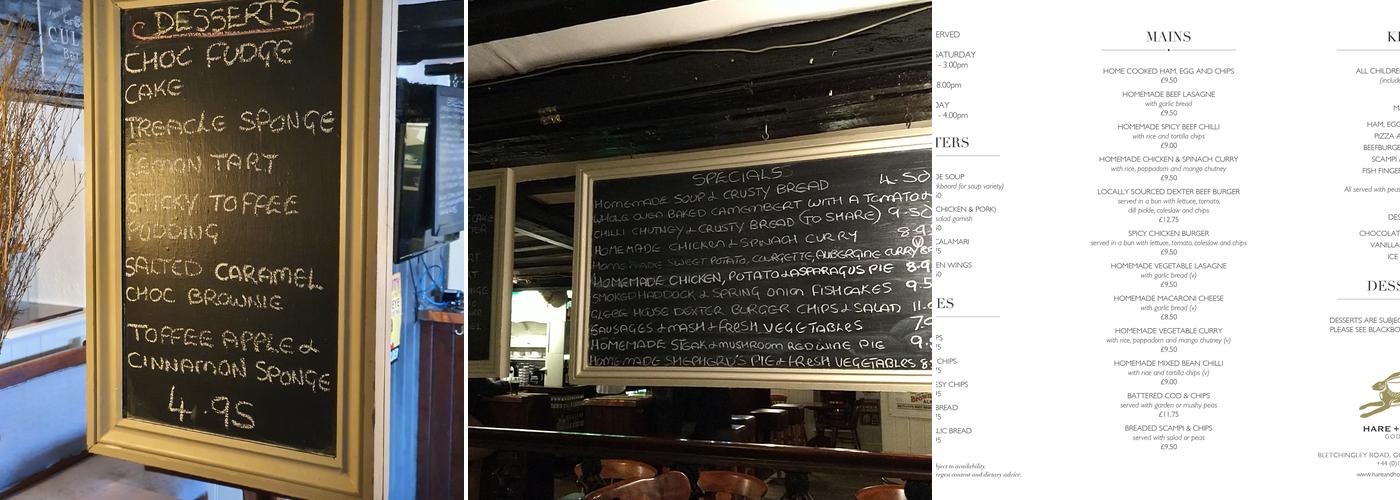 CUL
DESSERTS
CHOC FUDGE
CAKE
TREACLE SPONGE
LEMON TART
STICKY TOFFEE
PUDDING
SALTED CARAMEL
CHOC BROWNIE
TOFFEE APPLE &
CINNAMON SPONGE
4.95
SPECIALS
HOMEMADE SOUP & CRUSTY BREAD 4.50
WHOLE OVEN BAKED CAMEMBERT WITH A TOMATO &
CHILLI CHUTNEY & CRUSTY BREAD (TO SHARE) 9.50
HOMEMADE CHICKEN & SPINACH CURRY 8.9
HOMEMADE SWEET POTATO, COURGETTE, AUBERGINE CURRY (V) 8
HOMEMADE CHICKEN, POTATO & ASPARAGUS PIE 8.9
SMOKED HADDOCK & SPRING ONION FISHCAKES 9.5
GLEBE HOUSE DEXTER BURGER CHIPS & SALAD 11.
SAUSAGES & MASH & FRESH VEGETABLES 7.
HOMEMADE STEAK & MUSHROOM RED WINE PIE 9.
HOMEMADE SHEPHERD'S PIE & FRESH VEGETABLES 8.
ERVED
SATURDAY
- 3.00pm
8.00pm
DAY
- 4.00pm
TERS
DE SOUP
ckboard for soup variety)
50
CHICKEN & PORK)
salad garnish
50
CALAMARI
95
EN WINGS
50
ES
PS
95
CHIPS
ESY CHIPS
95
BREAD
LIC BREAD
95
bject to availability.
ergen content and dietary advice.
MAINS
HOME COOKED HAM, EGG AND CHIPS
£9.50
HOMEMADE BEEF LASAGNE
with garlic bread
£9.50
HOMEMADE SPICY BEEF CHILLI
with rice and tortilla chips
£9.00
HOMEMADE CHICKEN & SPINACH CURRY
with rice, poppadom and mango chutney
£9.50
LOCALLY SOURCED DEXTER BEEF BURGER
served in a bun with lettuce, tomato,
dill pickle, coleslaw and chips
£12.75
SPICY CHICKEN BURGER
served in a bun with lettuce, tomato, coleslaw and chips
£9.50
HOMEMADE VEGETABLE LASAGNE
with garlic bread (v)
£9.50
HOMEMADE MACARONI CHEESE
with garlic bread (v)
£8.50
HOMEMADE VEGETABLE CURRY
with rice, poppadom and mango chutney (v)
£9.50
HOMEMADE MIXED BEAN CHILLI
with rice and tortilla chips (v)
£9.00
BATTERED COD & CHIPS
served with garden or mushy peas
£11.75
BREADED SCAMPI & CHIPS
served with salad or peas
£9.50
KI
ALL CHILDRE
(includ
MA
HAM, EGG
PIZZA A
BEEFBURGE
SCAMPI A
FISH FINGER
All served with peas
DES
CHOCOLAT
VANILLA
ICE
DESS
DESSERTS ARE SUBJEC
PLEASE SEE BLACKBO
HARE +
GOD
BLETCHINGLEY ROAD, GO
+44 (0)1
www.hareandho